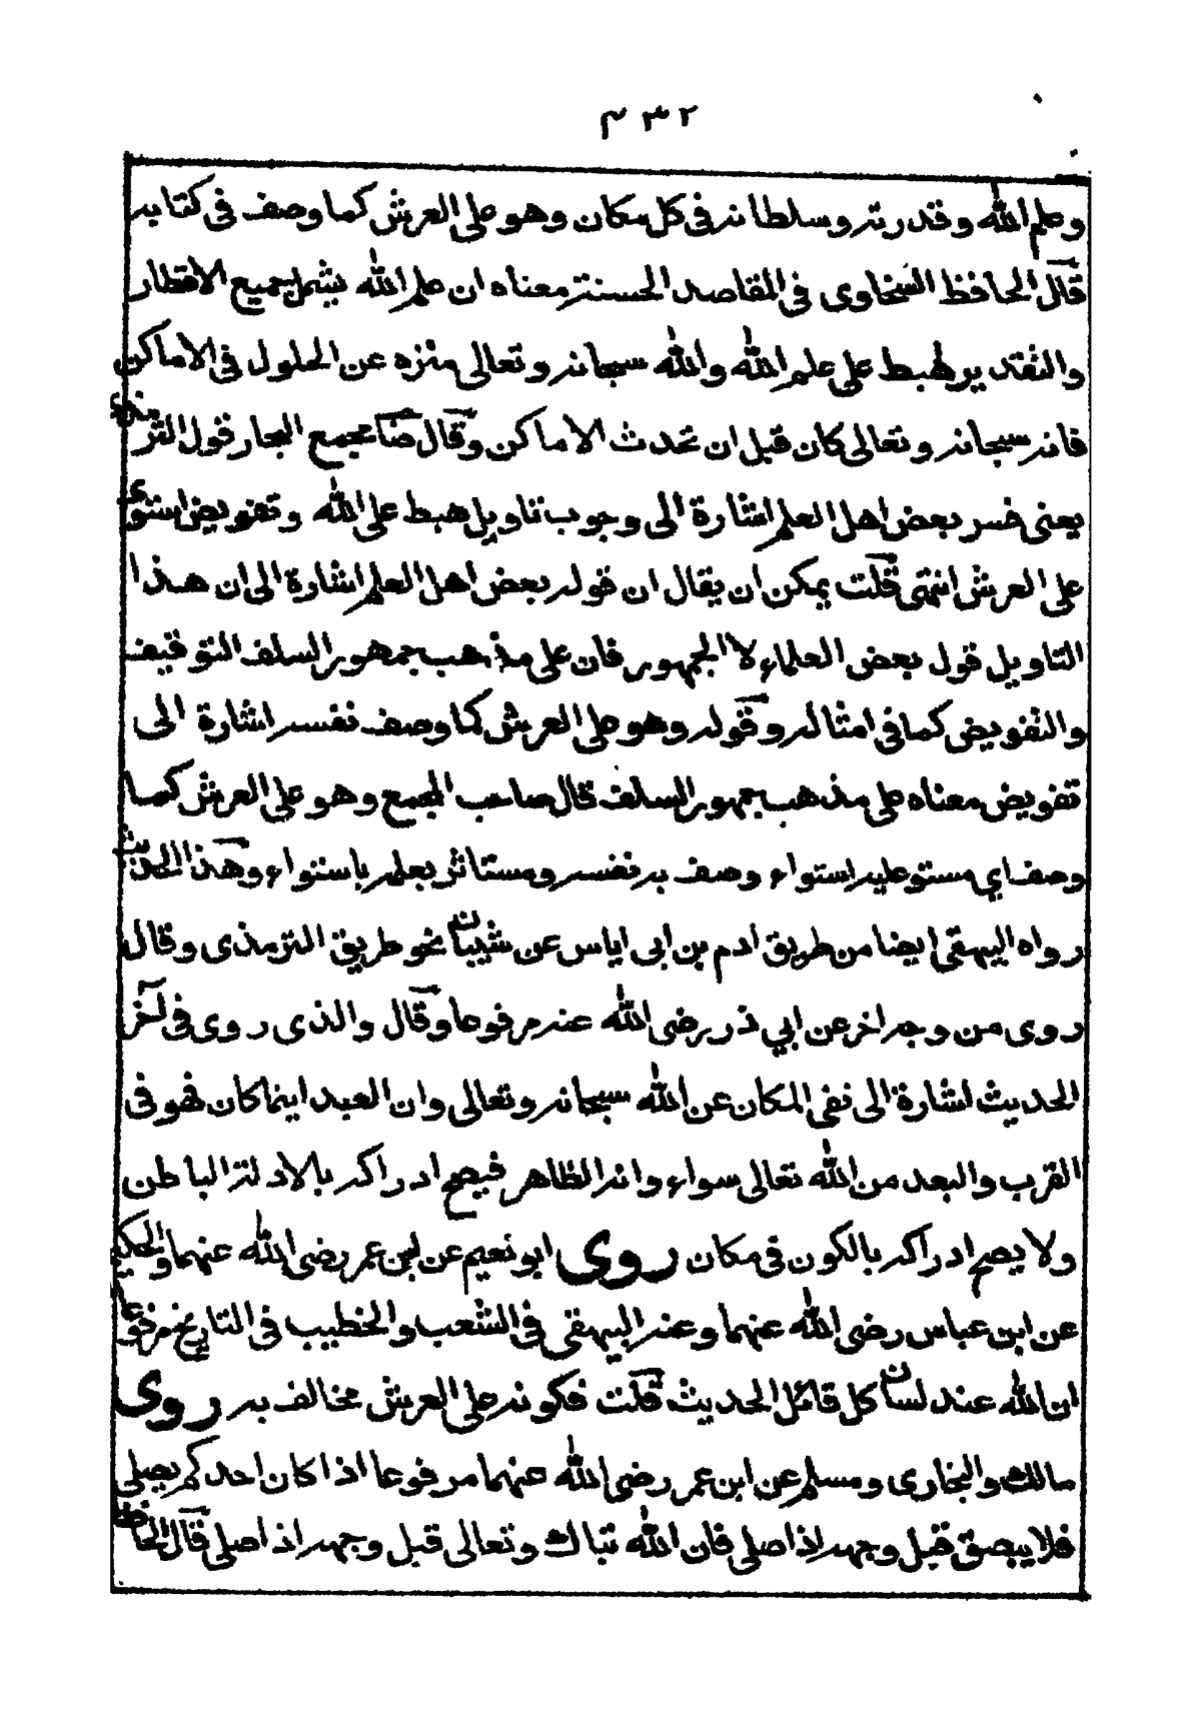 ٢٣٢
وعلم الله وقدرته وسلطانه فى كل مكان وهو على العرش كما وصف فى كتابه
قال الحافظ السخاوى فى المقاصد الحسنة معناه ان علم الله يشمل جميع الاقطار
والتقدير لهبط على علم الله والله سبحانه وتعالى منزه عن الحلول فى الاماكن
فانه سبحانه وتعالى كان قبل ان تحدث الاماكن وقال صا مجمع البحار قول الترمذى
يعنى فسر بعض اهل العلم اشارة الى وجوب تاويل هبط على الله وتفويض استوى
على العرش انتهى قلت يمكن ان يقال ان قوله بعض اهل العلم اشارة الى ان هذا
التاويل قول بعض العلماء لا الجمهور فان على مذهب جمهور السلف التوقيف
والتفويض كما فى امثاله وقوله وهو على العرش كما وصف نفسه اشارة الى
تفويض معناه على مذهب جمهور السلف قال صاحب المجمع وهو على العرش كما
وصف اي مستو عليه استواء وصف به نفسه ومستاثر بعلمه باستواء وهذا الحديث
رواه البيهقى ايضا من طريق ادم بن ابى اياس عن شيبان نحو طريق الترمذى وقال
روى من وجه اخر عن ابي ذر رضى الله عنه مرفوعا وقال والذى روى فى آخر
الحديث اشارة الى نفى المكان عن الله سبحانه وتعالى وان العبد اينما كان فهو فى
القرب والبعد من الله تعالى سواء وانه الظاهر فيصح ادراكه بالادلة الباطن
ولا يصح ادراكه بالكون فى مكان روى ابو نعيم عن ابن عمر رضى الله عنهما والحكيم
عن ابن عباس رضى الله عنهما وعنه البيهقى فى الشعب والخطيب فى التاريخ مرفوعا
ان الله عند لسان كل قائل الحديث قلت فكونه على العرش مخالف به روى
مالك والبخارى ومسلم عن ابن عمر رضى الله عنهما مرفوعا اذا كان احدكم يصلى
فلا يبصق قبل وجهه اذا صلى فان الله تبارك وتعالى قبل وجهه اذا صلى قال الحافظ